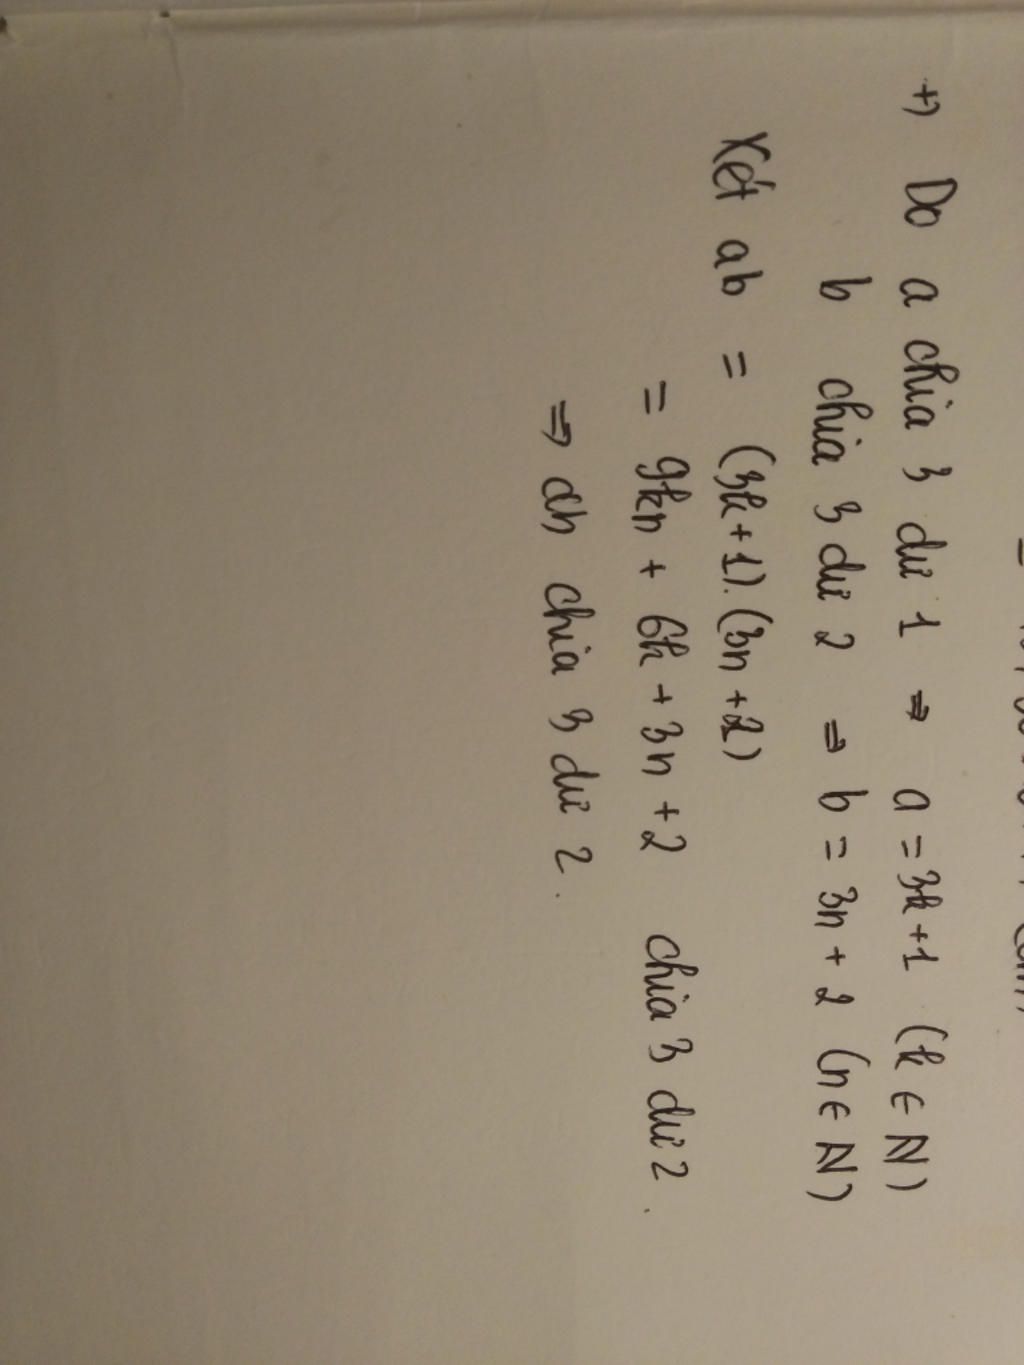 +) Do a chia 3 dư 1 ⇒ a = 3k+1 (k ∈ N)
b chia 3 dư 2 ⇒ b = 3n + 2 (n ∈ N)
Xét ab = (3k+1).(3n+2)
= 9kn + 6k + 3n + 2 chia 3 dư 2.
⇒ ab chia 3 dư 2.